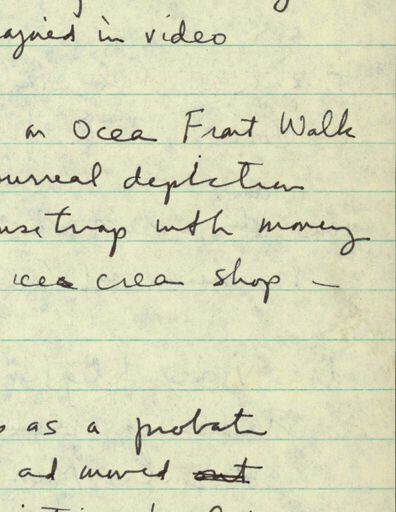 in video
on Ocea Front Walk
surreal depiction
mousetrap with money
ice crea shop –
as a probate
ad moved out